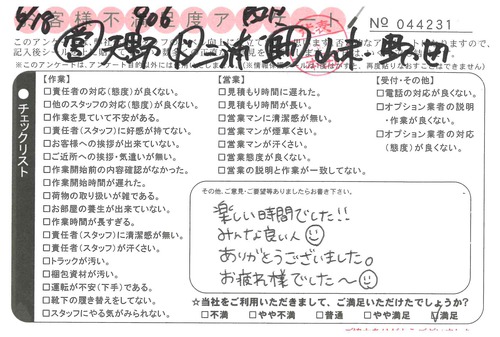 お客様不満足度アンケート
4/18
906
No 044231
チェックリスト
【作業】
□責任者の対応(態度)が良くない。
□他のスタッフの対応(態度)が良くない。
□作業を見ていて不安がある。
□責任者(スタッフ)に好感が持てない。
□お客様への挨拶が出来ていない。
□ご近所への挨拶・気遣いが無い。
□作業開始前の内容確認がなかった。
□作業開始時間が遅れた。
□荷物の取り扱いが雑である。
□お部屋の養生が出来ていない。
□作業時間が長すぎる。
□責任者(スタッフ)に清潔感が無い。
□責任者(スタッフ)が汗くさい。
□トラックが汚い。
□梱包資材が汚い。
□運転が安い(下手)である。
□靴下の履き替えをしてない。
□スタッフにやる気がみられない。
【営業】
□見積もり時間に遅れた。
□見積もり時間が長い。
□営業マンに清潔感が無い。
□営業マンが煙草くさい。
□営業マンが汗くさい。
□営業態度が良くない。
□営業の説明と作業が一致してない。
【受付・その他】
□電話の対応が良くない。
□オプション業者の説明
・作業が良くない。
□オプション業者の対応
(態度)が良くない。
その他、ご意見・ご要望等ありましたらお書き下さい。
楽しい時間でした!!
みんな良い人
ありがとうございました。
お疲れ様でした〜
☆当社をご利用いただきまして、ご満足いただけたでしょうか?
□不満 □やや不満 □普通 □やや満足 □満足